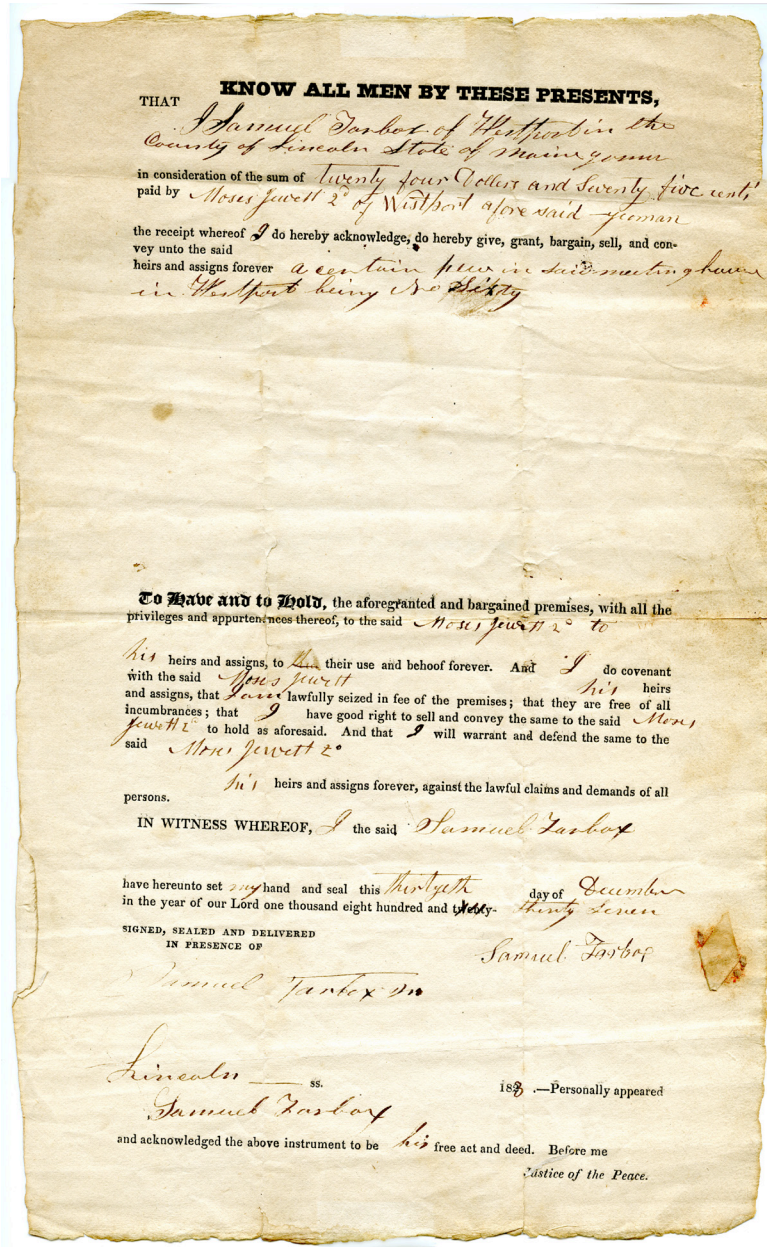 KNOW ALL MEN BY THESE PRESENTS,
THAT
I Samuel Tarbox of Westport in the
County of Lincoln State of Maine
in consideration of the sum of twenty four Dollers and Seventy five cents
paid by Moses Jewett 2d of Westport afore said yeoman
the receipt whereof I do hereby acknowledge, do hereby give, grant, bargain, sell, and con-
vey unto the said
heirs and assigns forever a certain pew in said meeting house
in Westport being No Sixty
To Have and to Hold, the aforegranted and bargained premises, with all the
privileges and appurtenances thereof, to the said Moses Jewett 2d to
his heirs and assigns, to their use and behoof forever. And I do covenant
with the said Moses Jewett his heirs
and assigns, that I am lawfully seized in fee of the premises; that they are free of all
incumbrances; that I have good right to sell and convey the same to the said Moses
Jewett 2d to hold as aforesaid. And that I will warrant and defend the same to the
said Moses Jewett 2d
his heirs and assigns forever, against the lawful claims and demands of all
persons.
IN WITNESS WHEREOF, I the said Samuel Tarbox
have hereunto set my hand and seal this thirtyeth day of December
in the year of our Lord one thousand eight hundred and twenty- thirty seven
SIGNED, SEALED AND DELIVERED
IN PRESENCE OF
Samuel Tarbox
Samuel Tarbox Jr
Lincoln ss. 183 .—Personally appeared
Samuel Tarbox
and acknowledged the above instrument to be his free act and deed. Before me
Justice of the Peace.